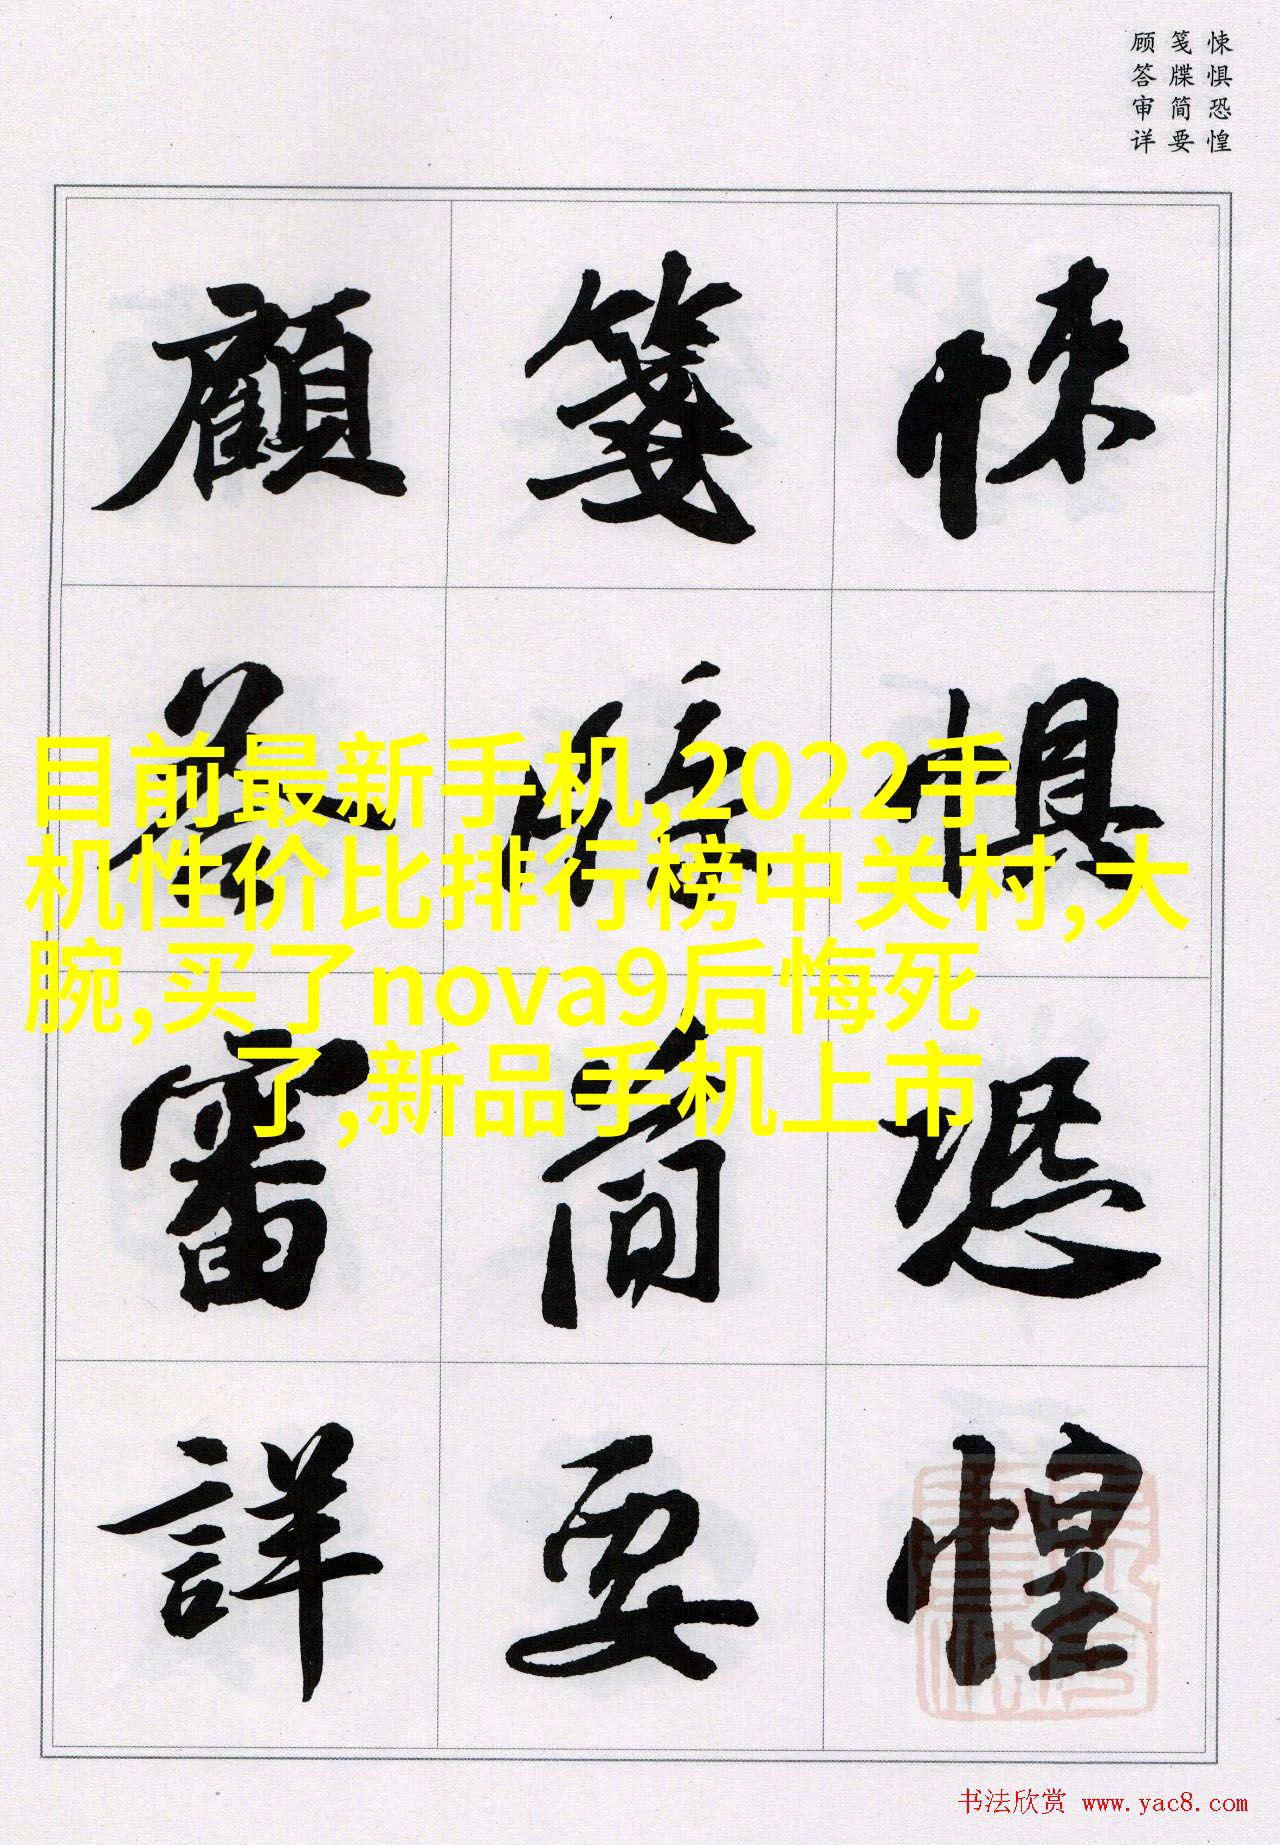 悚惧恐惶
笺牒简要
顾答审详
悚懼恐惶
箋牒簡要
顧答審詳
目前最新手机,2022手
机性价比排行榜中关村,大
腕,买了nova9后悔死
了,新品手机上市
书法欣赏 www.yac8.com